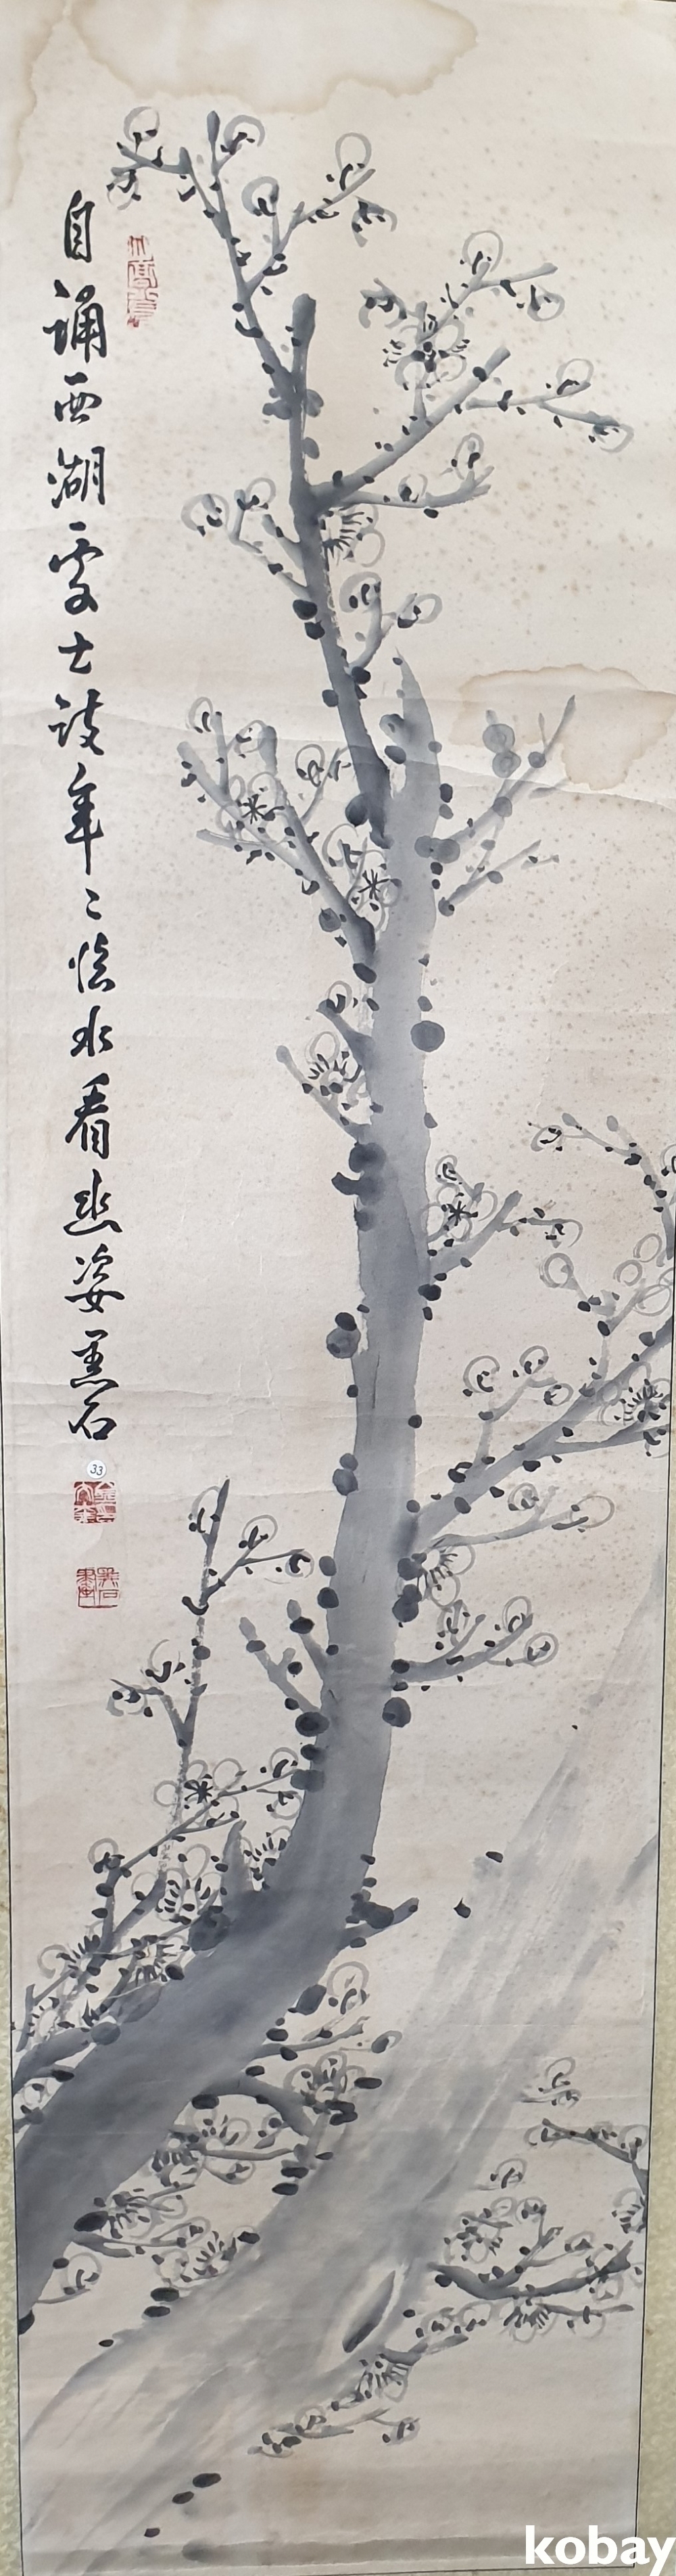 自誦西湖處士詩年〻臨水看幽姿墨石
33
kobay